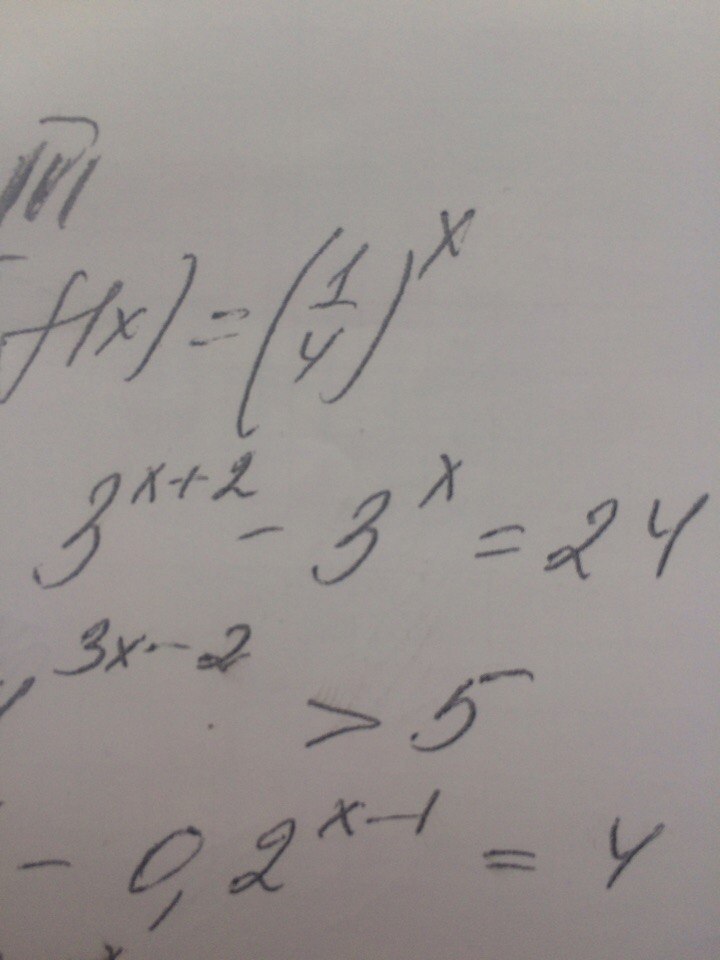 f(x) = (1/4)^x
3^{x+2} - 3^x = 24
^{3x-2} > 5
- 0,2^{x-1} = 4
x